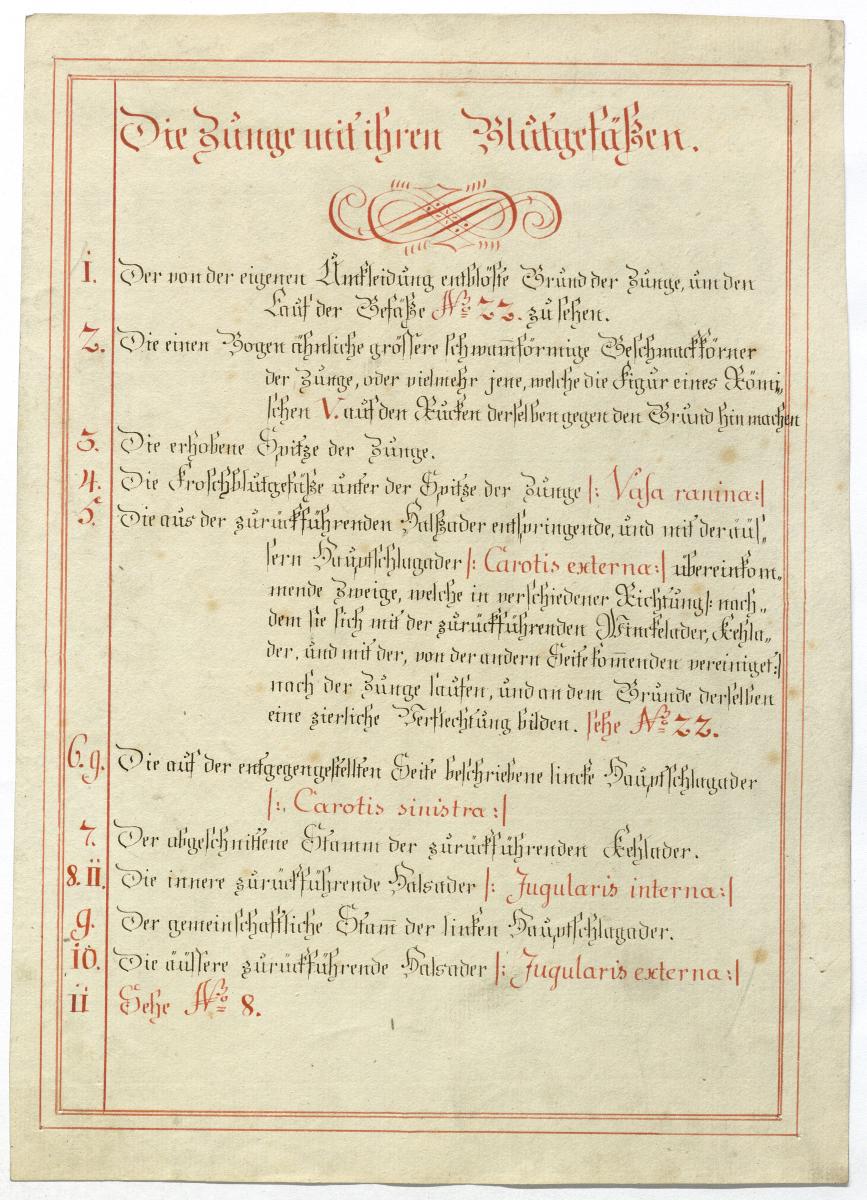 Die Zunge mit ihren Blutgefäßen.
1. Der von der eigenen Umkleidung entblößte Grund der Zunge, um den
Lauf der Gefäße No 22. zu sehen.
2. Die einen Bogen ähnliche grössere schwam̅förmige Geschmackkörner
der Zunge, oder vielmehr jene, welche die Figur eines Römi„
schen V. auf den Rücken derselben gegen den Grund hin machen
3. Die erhobene Spitze der Zunge.
4. Die Froschblutgefäße unter der Spitze der Zunge |: Vasa ranina :|
5. Die aus der zurückführenden Halsader entspringende, und mit der äüs„
sern Hauptschlagader |: Carotis externa :| übereinkom„
mende Zweige, welche in verschiedener Richtung |: nach„
dem sie sich mit der zurückführenden Winckelader, Kehla„
der, und mit der, von der andern Seite kom̅enden vereiniget :|
nach der Zunge laufen, und an dem Grunde derselben
eine zierliche Verflechtung bilden. sehe No 22.
6. 9. Die auf der entgegengestellten Seite beschriebene lincke Hauptschlagader
|: Carotis sinistra :|
7. Der abgeschnittene Stamm der zurückführenden Kehlader.
8. 11. Die innere zurückführende Halsader |: Jugularis interna :|
9. Der gemeinschaftliche Stam̅ der linken Hauptschlagader.
10. Die äüssere zurückführende Halsader |: Jugularis externa :|
11 Sehe No 8.